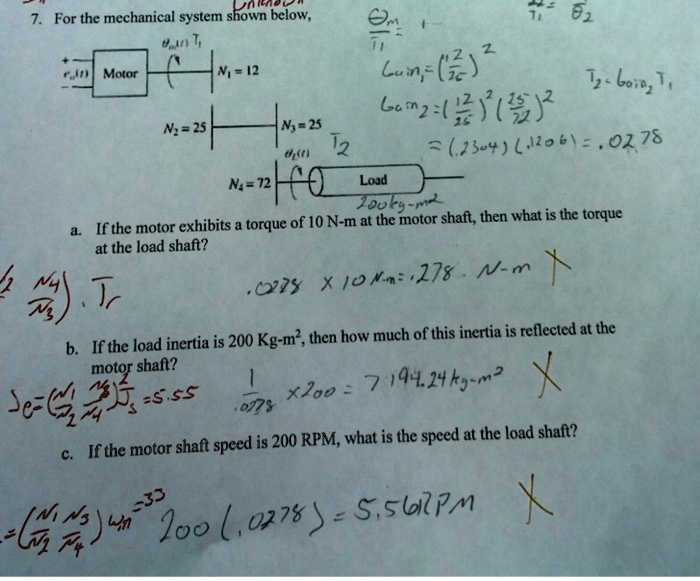 7. For the mechanical system shown below,
θm
T1
θ2
θm(t) T1
Motor
N1 = 12
Gain1 = (12/25)^2
Gain2 = (12/25)^2 (25/72)^2
T2 = Gain2 T1
N2 = 25
N3 = 25
= (.2304) (.1206) = .0278
T2
θ2(t)
N4 = 72
Load
200kg-m2
a. If the motor exhibits a torque of 10 N-m at the motor shaft, then what is the torque
at the load shaft?
N4/N3) . Tr
.0278 X 10 N.m = .278 N-m X
b. If the load inertia is 200 Kg-m², then how much of this inertia is reflected at the
motor shaft?
Je = (N1/N2 N3/N4)^2 Js = 5.55
1/.0278 x 200 = 7194.24 kg-m² X
c. If the motor shaft speed is 200 RPM, what is the speed at the load shaft?
= (N1/N2 N3/N4) wm = 33
200 (.0278) = 5.56 RPM X